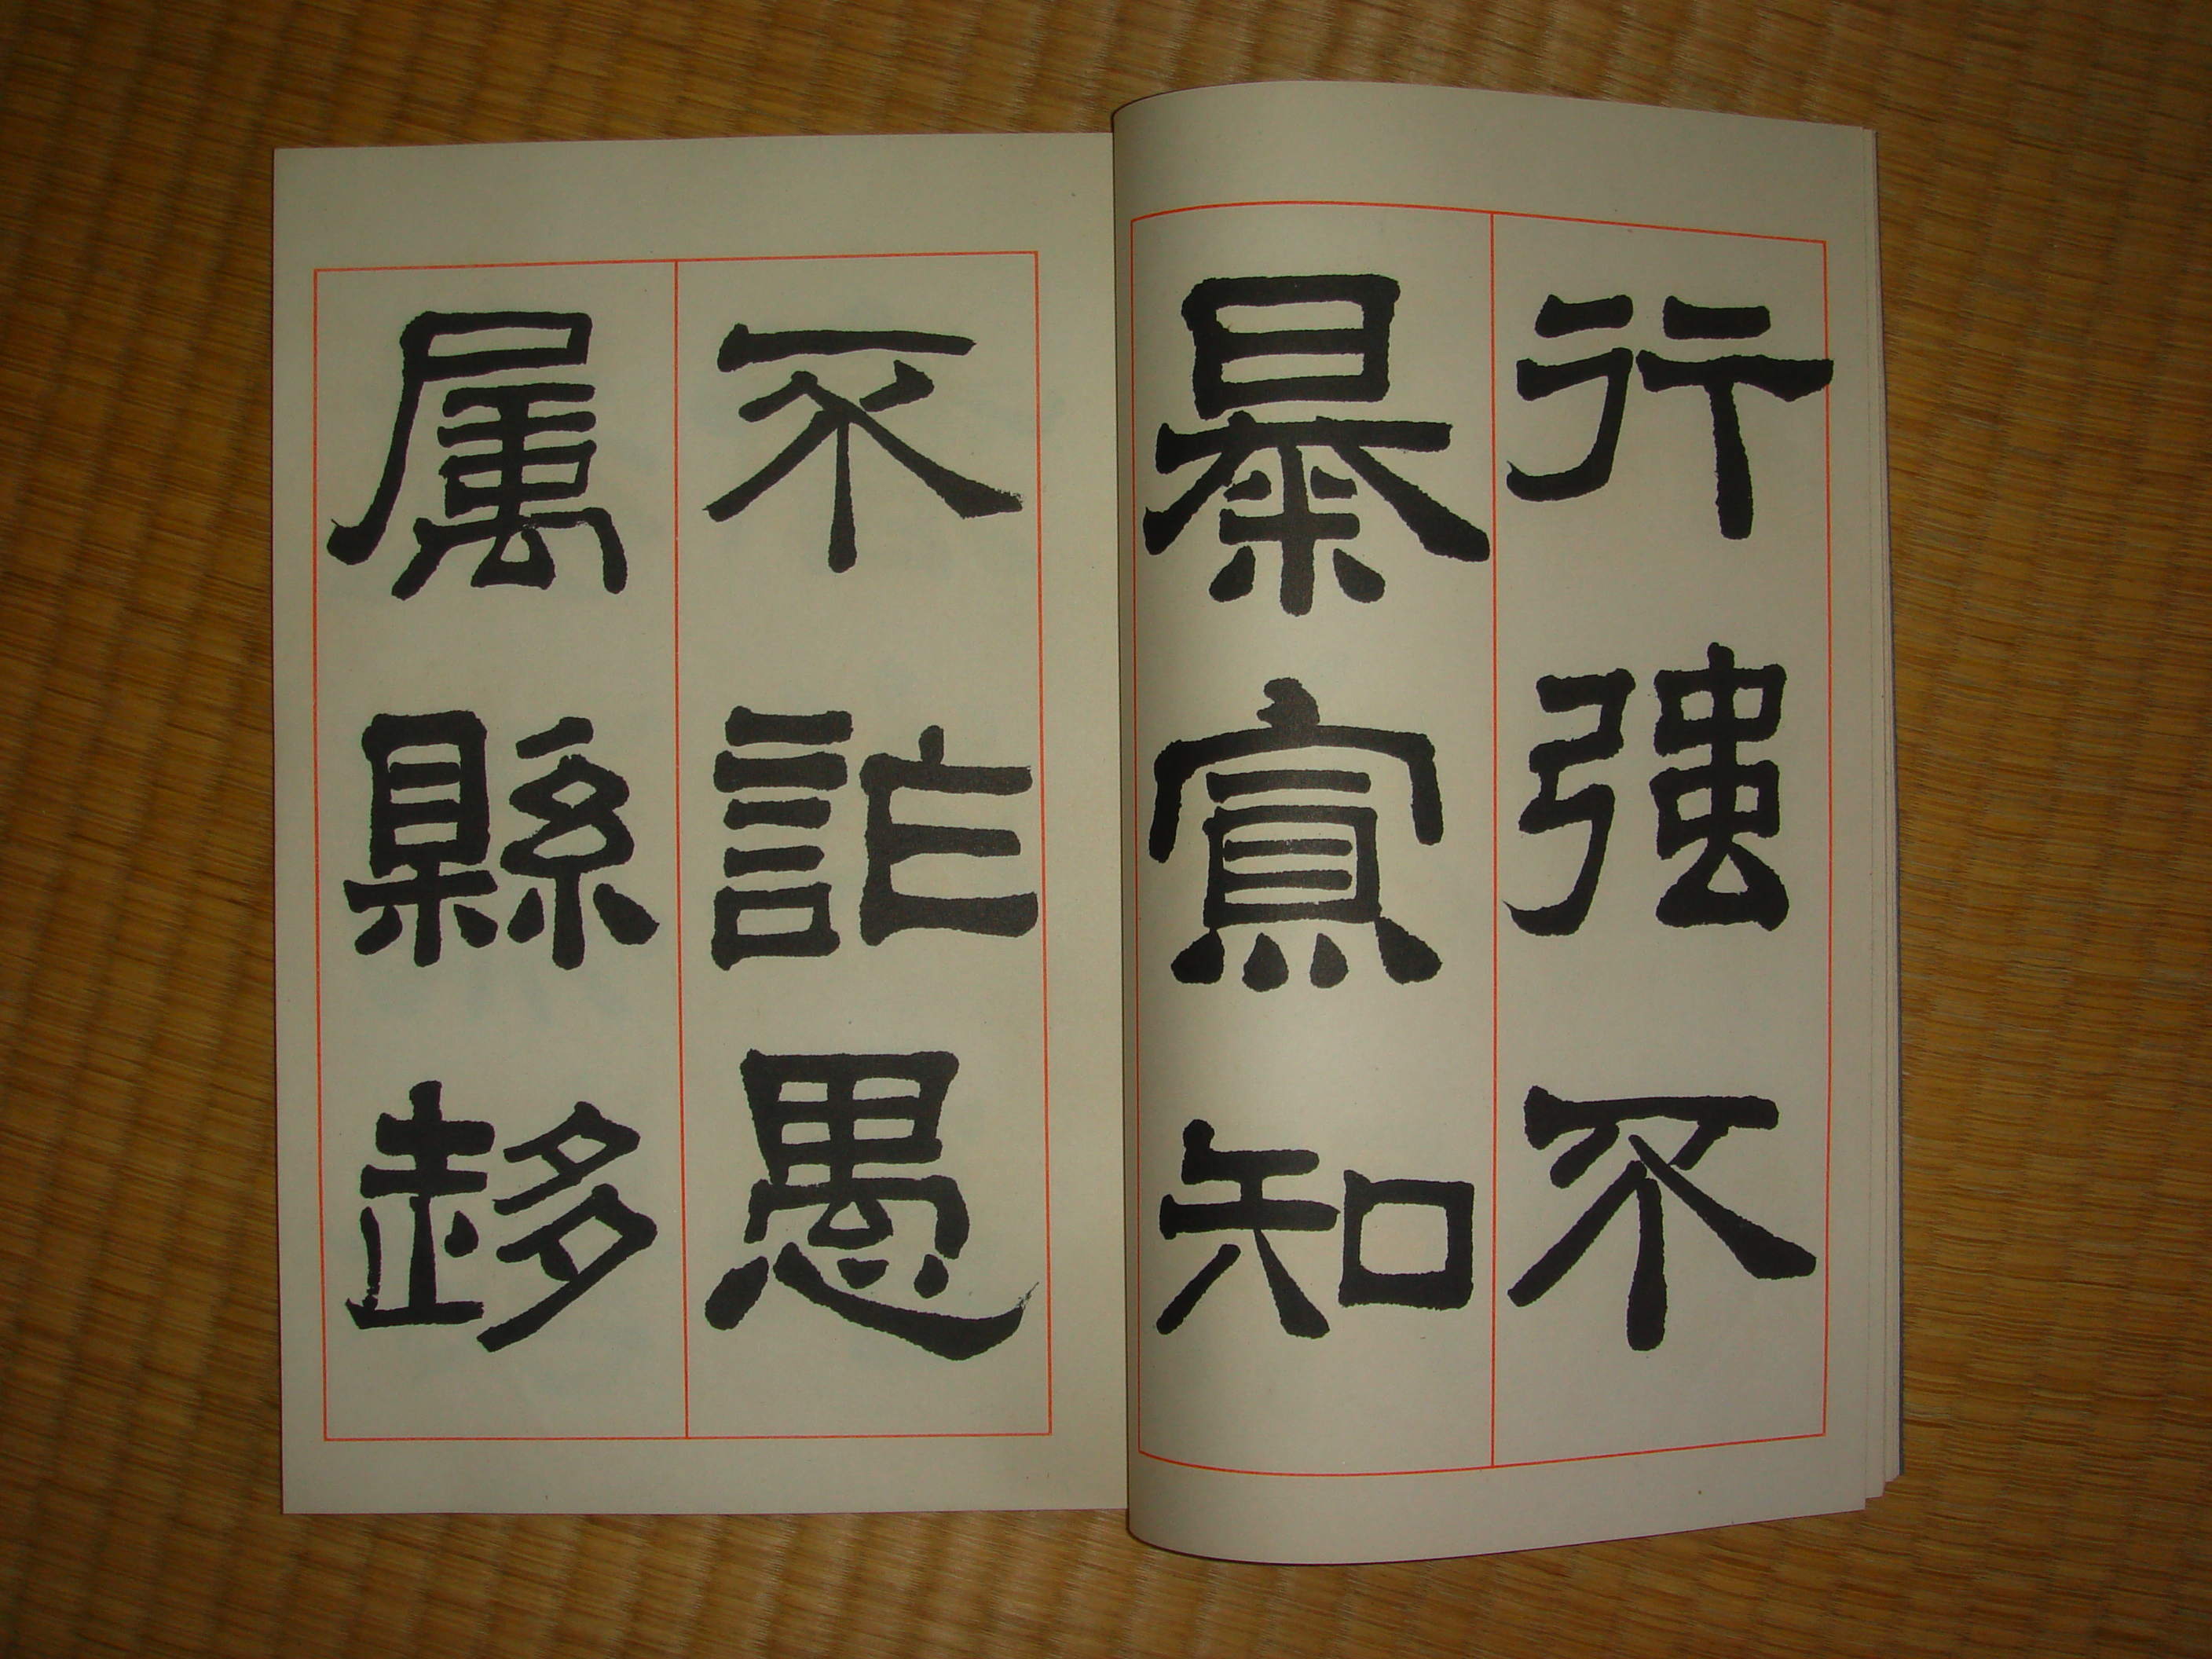 行強不
暴寡知
不詐愚
属縣趍